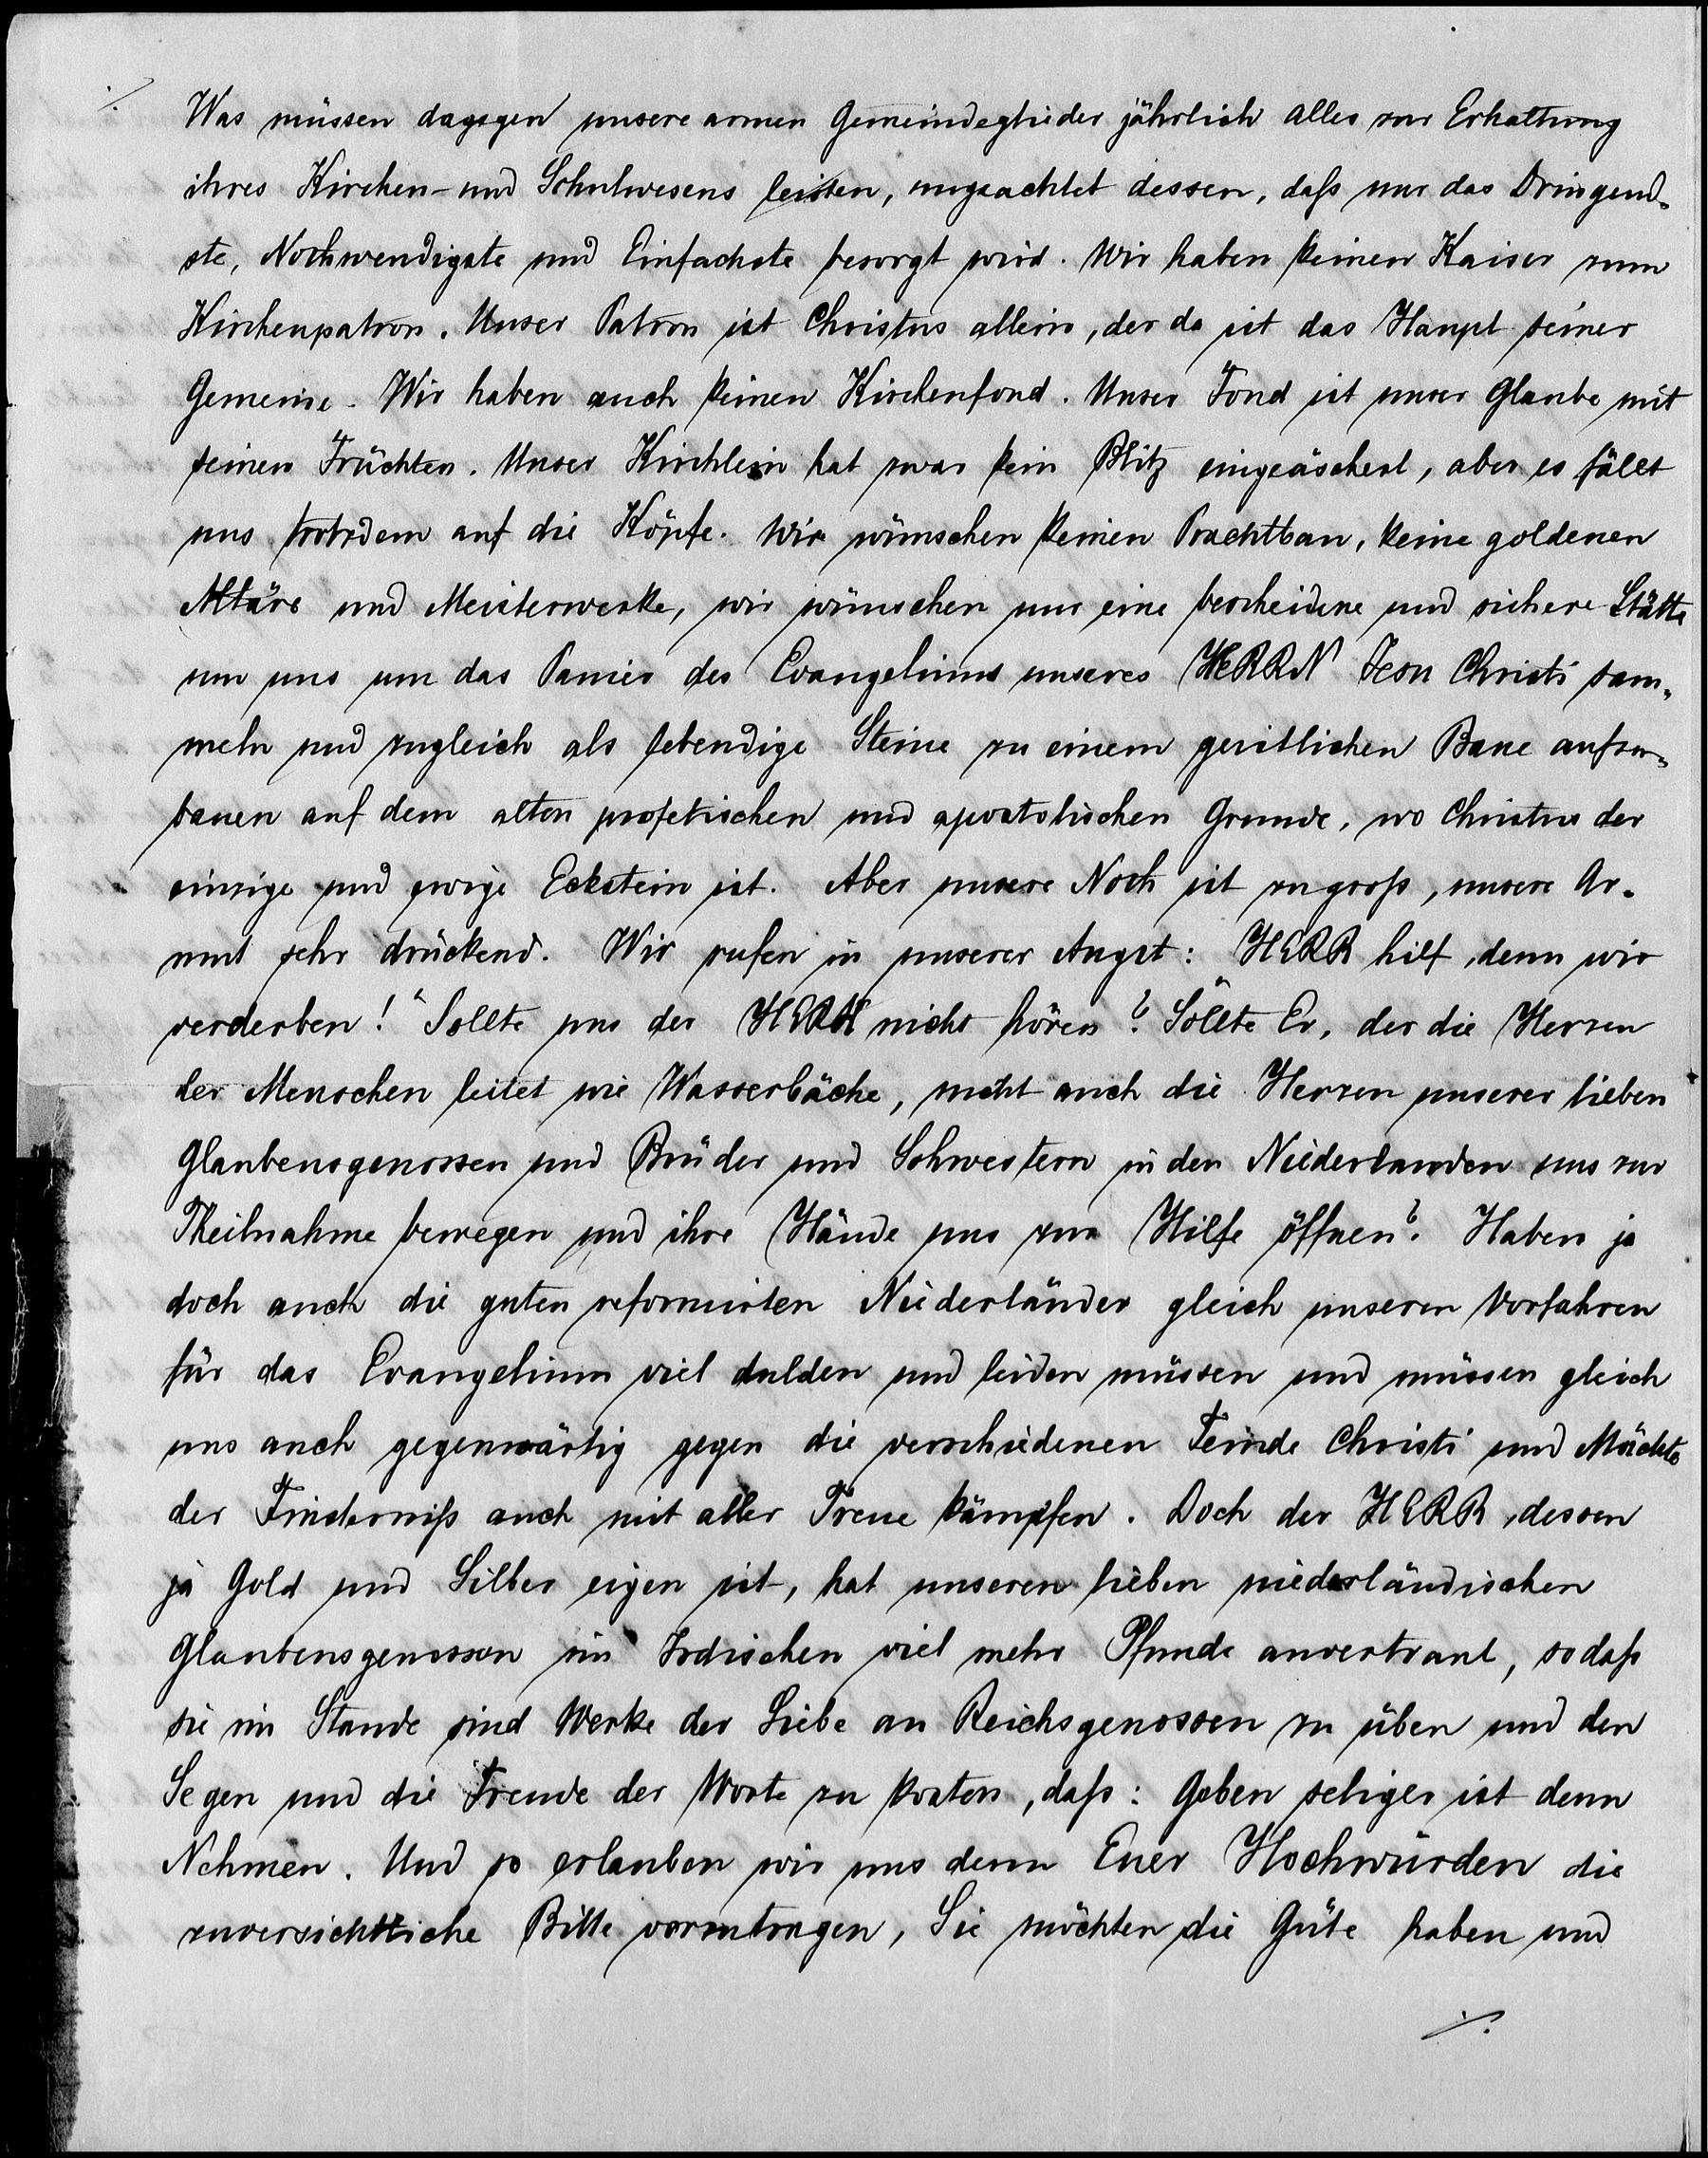 ⁒ Was müssen dagegen unsere armen Gemeindeglieder jährlich alles zur Erhaltung
ihres Kirchen- und Schulwesens leisten, ungeachtet dessen, daß nur das Dringend-
ste, Nothwendigste und Einfachste besorgt wird. Wir haben keinen Kaiser zum
Kirchenpatron. Unser Patron ist Christus allein, der da ist das Haupt seiner
Gemeine. Wir haben auch keinen Kirchenfond. Unser Fond ist unser Glaube mit
seinen Früchten. Unser Kirchlein hat zwar kein Blitz eingeäschert, aber es fällt
uns trotzdem auf die Köpfe. Wir wünschen keinen Prachtbau, keine goldenen
Altäre und Meisterwerke, wir wünschen nur eine bescheidene und sichere Stätte
um uns um das Panier des Evangeliums unseres HERRN Jesu Christi sam-
meln und zugleich als lebendige Steine zu einem geistlichen Baue aufzu-
bauen auf dem alten profetischen und apostolischen Grunde, wo Christus der
einzige und ewige Eckstein ist. Aber unsere Noth ist zu groß, unsere Ar-
mut sehr drückend. Wir rufen in unserer Angst: HERR hilf, denn wir
verderben!" Sollte uns der HERR nicht hören? Sollte Er, der die Herzen
der Menschen leitet wie Wasserbäche, nicht auch die Herzen unserer lieben
Glaubensgenossen und Brüder und Schwestern in den Niederlanden uns zur
Theilnahme bewegen und ihre Hände uns zur Hilfe öffnen? Haben ja
doch auch die guten reformirten Niederländer gleich unseren Vorfahren
für das Evangelium viel dulden und leiden müssen und müssen gleich
uns auch gegenwärtig gegen die verschiedenen Feinde Christi und Mächte
der Finsterniß auch mit aller Treue kämpfen. Doch der HERR, dessen
ja Gold und Silber eigen ist, hat unseren lieben niederländischen
Glaubensgenossen im Irdischen viel mehr Pfunde anvertraut, sodaß
sie im Stande sind Werke der Liebe an Reichsgenossen zu üben und den
Segen und die Freude der Worte zu kosten, daß: Geben seliger ist denn
Nehmen. Und so erlauben wir uns denn Euer Hochwürden die
zuversichtliche Bitte vorzutragen, Sie möchten die Güte haben und
⁒